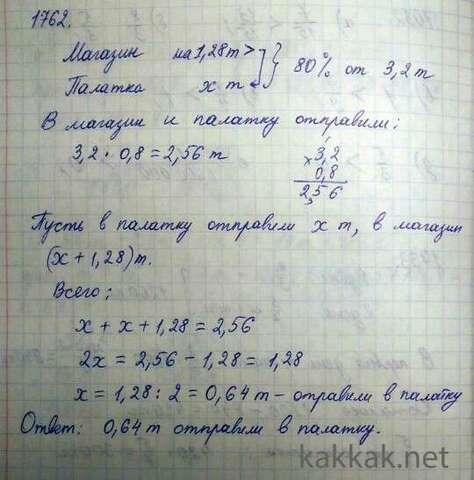 1762.
Магазин на 1,28т > } 80% от 3,2 т
Палатка х т
В магазин и палатку отправили:
3,2 · 0,8 = 2,56 т
× 3,2
0,8
2,56
Пусть в палатку отправили х т, в магазин
(х + 1,28) т.
Всего:
х + х + 1,28 = 2,56
2х = 2,56 - 1,28 = 1,28
х = 1,28 : 2 = 0,64 т - отправили в палатку
Ответ: 0,64 т отправили в палатку.
kakkak.net